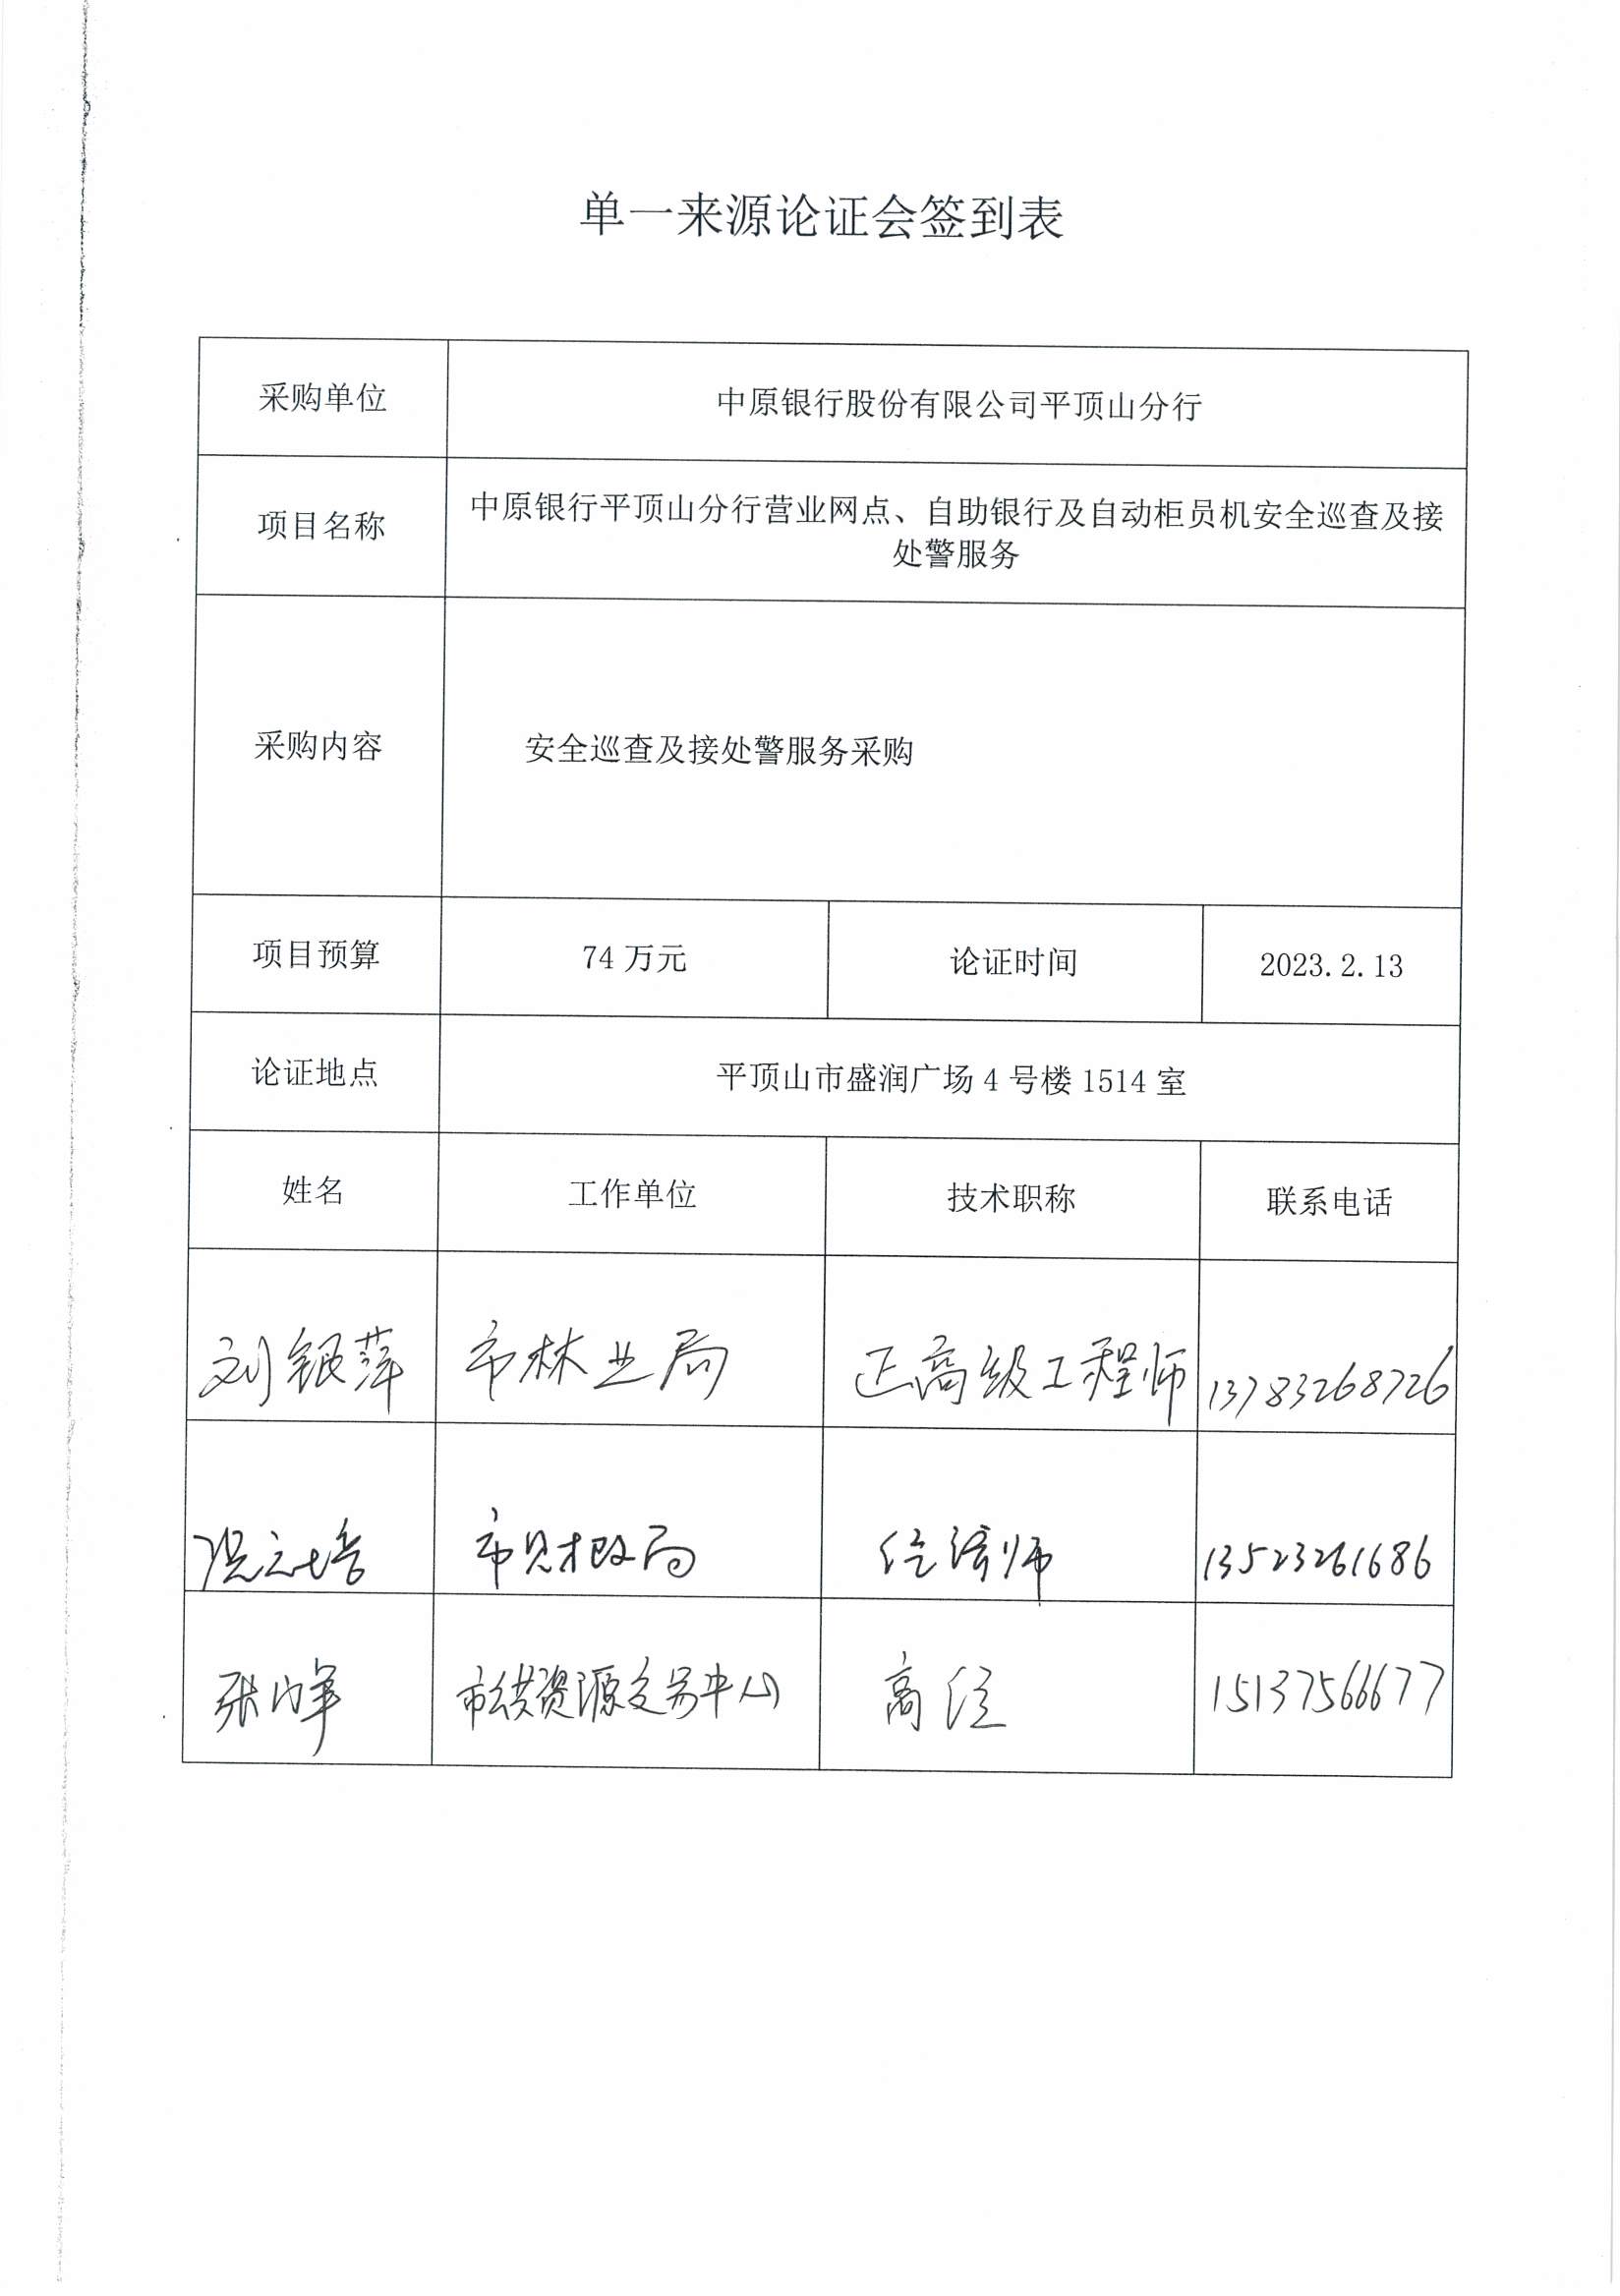 单一来源论证会签到表
采购单位 中原银行股份有限公司平顶山分行
项目名称 中原银行平顶山分行营业网点、自助银行及自动柜员机安全巡查及接
处警服务
采购内容 安全巡查及接处警服务采购
项目预算 74万元 论证时间 2023.2.13
论证地点 平顶山市盛润广场4号楼1514室
姓名 工作单位 技术职称 联系电话
刘银萍 市林业局 正高级工程师 13783268726
市财政局 经济师 13523261686
张 市公共资源交易中心 高经 15137566677